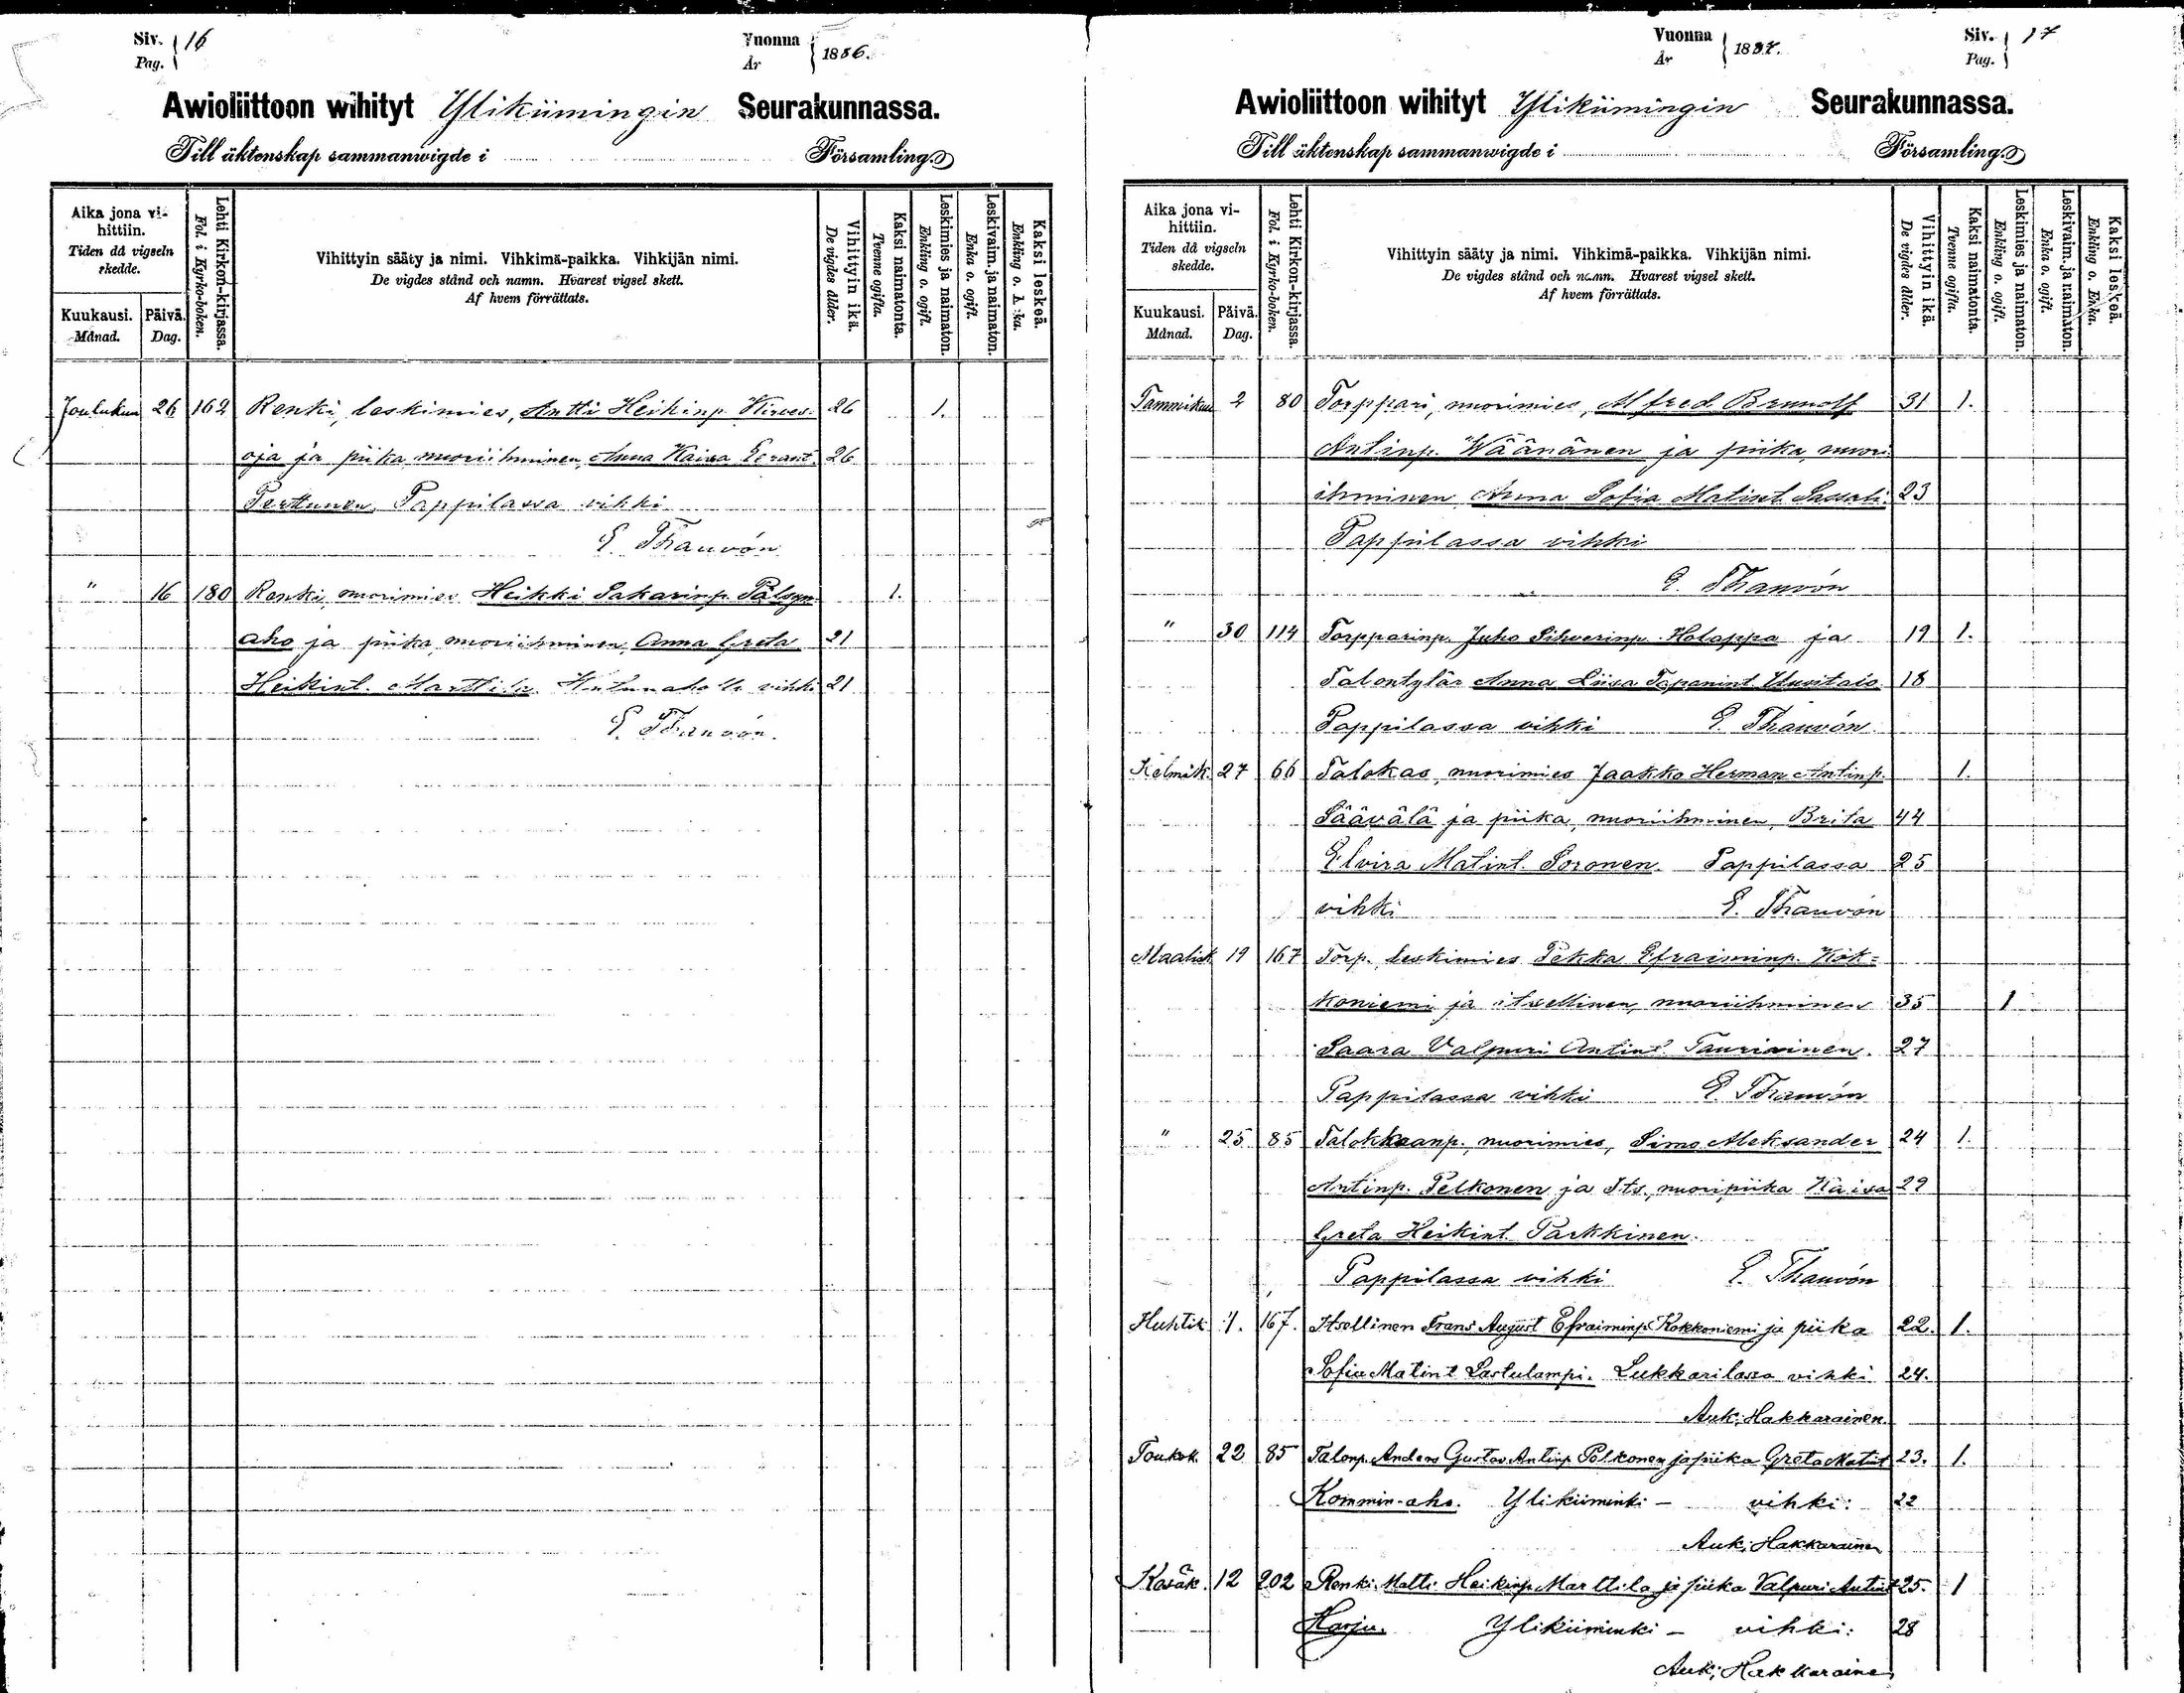 Siv. 16
Pag.
Vuonna 1886.
År
Awioliittoon wihityt Ylikiimingin Seurakunnassa.
Till äktenskap sammanwigde i Församling.
Aika jona vi-
hittiin.
Tiden då vigseln
skedde.
Kuukausi.
Månad.
Päivä.
Dag.
Lehti Kirkon-kirjassa.
Fol. i Kyrko-boken.
Vihittyin sääty ja nimi. Vihkimä-paikka. Vihkijän nimi.
De vigdes stånd och namn. Hvarest vigsel skett.
Af hvem förrättats.
Vihittyin ikä.
De vigdes ålder.
Kaksi naimatonta.
Tvenne ogifta.
Leskimies ja naimaton.
Enkling o. ogift.
Leskivaim. ja naimaton.
Enka o. ogift.
Kaksi leskeä.
Enkling o. Enka.
Joulukuu 26 162 Renki, leskimies, Antti Heikinp. Kirves- 26 1.
oja ja piika nuoriihminen, Anna Kaisa 26
Perttunen, Pappilassa vihki
E. Thauvón
" 16 180 Renki, nuorimies Heikki Sakarinp. 1.
aho ja piika, nuoriihminen, Anna Greta 21
Heikint. Marttila. vihki 21
E. Thauvón.
Vuonna 1887.
År
Siv. 17
Pag.
Awioliittoon wihityt Ylikiimingin Seurakunnassa.
Till äktenskap sammanwigde i Församling.
Aika jona vi-
hittiin.
Tiden då vigseln
skedde.
Kuukausi.
Månad.
Päivä.
Dag.
Lehti Kirkon-kirjassa.
Fol. i Kyrko-boken.
Vihittyin sääty ja nimi. Vihkimä-paikka. Vihkijän nimi.
De vigdes stånd och namn. Hvarest vigsel skett.
Af hvem förrättats.
Vihittyin ikä.
De vigdes ålder.
Kaksi naimatonta.
Tvenne ogifta.
Leskimies ja naimaton.
Enkling o. ogift.
Leskivaim. ja naimaton.
Enka o. ogift.
Kaksi leskeä.
Enkling o. Enka.
Tammikuu 2 80 Torppari, nuorimies, Alfred Brunolf 31 1.
Antinp. Väänänen ja piika, nuori
ihminen Anna Sofia Matint. 23
Pappilassa vihki
E. Thauvón
" 30 114 Torpparinp. Juho Sihverinp. Holappa ja 19 1.
Talontytär Anna Liisa Tapanint. Uusitalo 18
Pappilassa vihki E. Thauvón
Helmik. 27 66 Talokas, nuorimies Jaakko Herman Antinp. 1.
Säävälä ja piika, nuoriihminen, Brita 44
Elvira Matint. Soronen. Pappilassa 25
vihki E. Thauvón
Maalisk 19 167 Torp. leskimies Pekka Efraiminp. Kok=
koniemi ja itsellinen, nuoriihminen 35 1
Saara Valpuri Antint. Tauriainen. 27
Pappilassa vihki E. Thauvón
" 25 85 Talokkaanp., nuorimies, Simo Aleksander 24 1.
Antinp. Pelkonen ja Its., nuoripiika Kaisa 29
Greta Heikint. Parkkinen.
Pappilassa vihki E. Thauvón
Huhtik 11. 167. Itsellinen Frans August Efraiminp. Kokkoniemi ja piika 22. 1.
Sofia Matint Lastulampi. Lukkarilassa vihki 24.
Auk: Hakkarainen.
Toukok. 22 85 Talonp. Anders Gustav Antinp Pelkonen ja piika Greta Matint 23. 1.
Kommin-aho. Ylikiiminki – vihki: 22
Auk: Hakkarainen
Kesäk. 12 202 Renki Matti Heikinp Marttila ja piika Valpuri Antint 25. 1
Harju. Ylikiiminki – vihki: 28
Auk: Hakkaraine